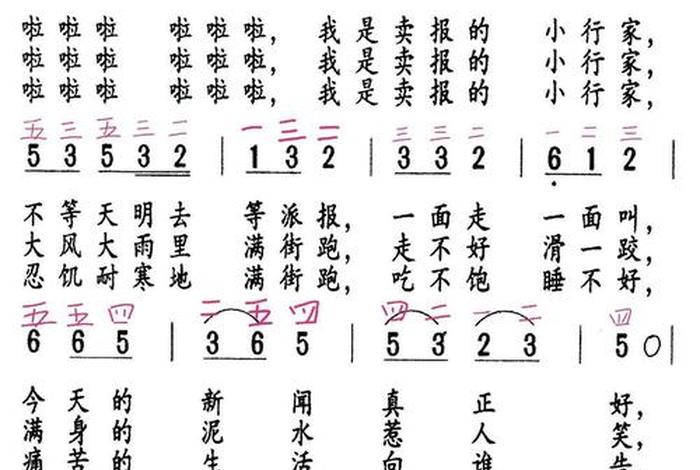 啦啦啦 啦啦啦， 我是卖报的 小行家，
啦啦啦 啦啦啦， 我是卖报的 小行家，
啦啦啦 啦啦啦， 我是卖报的 小行家，
五三五三二 一三二 三三二 一二三
5 3 5 3 2 | 1 3 2 | 3 3 2 | 6 1 2 |
不等天明去 等派报， 一面走 一面叫，
大风大雨里 满街跑， 走不好 滑一跤，
忍饥耐寒地 满街跑， 吃不饱 睡不好，
五五四 二五四 四二一二 四
6 6 5 | 3 6 5 | 5 3 2 3 | 5 0 |
今天的 新闻 真正 好，
满身的 泥水 惹人 笑，
痛苦的 生活 向谁